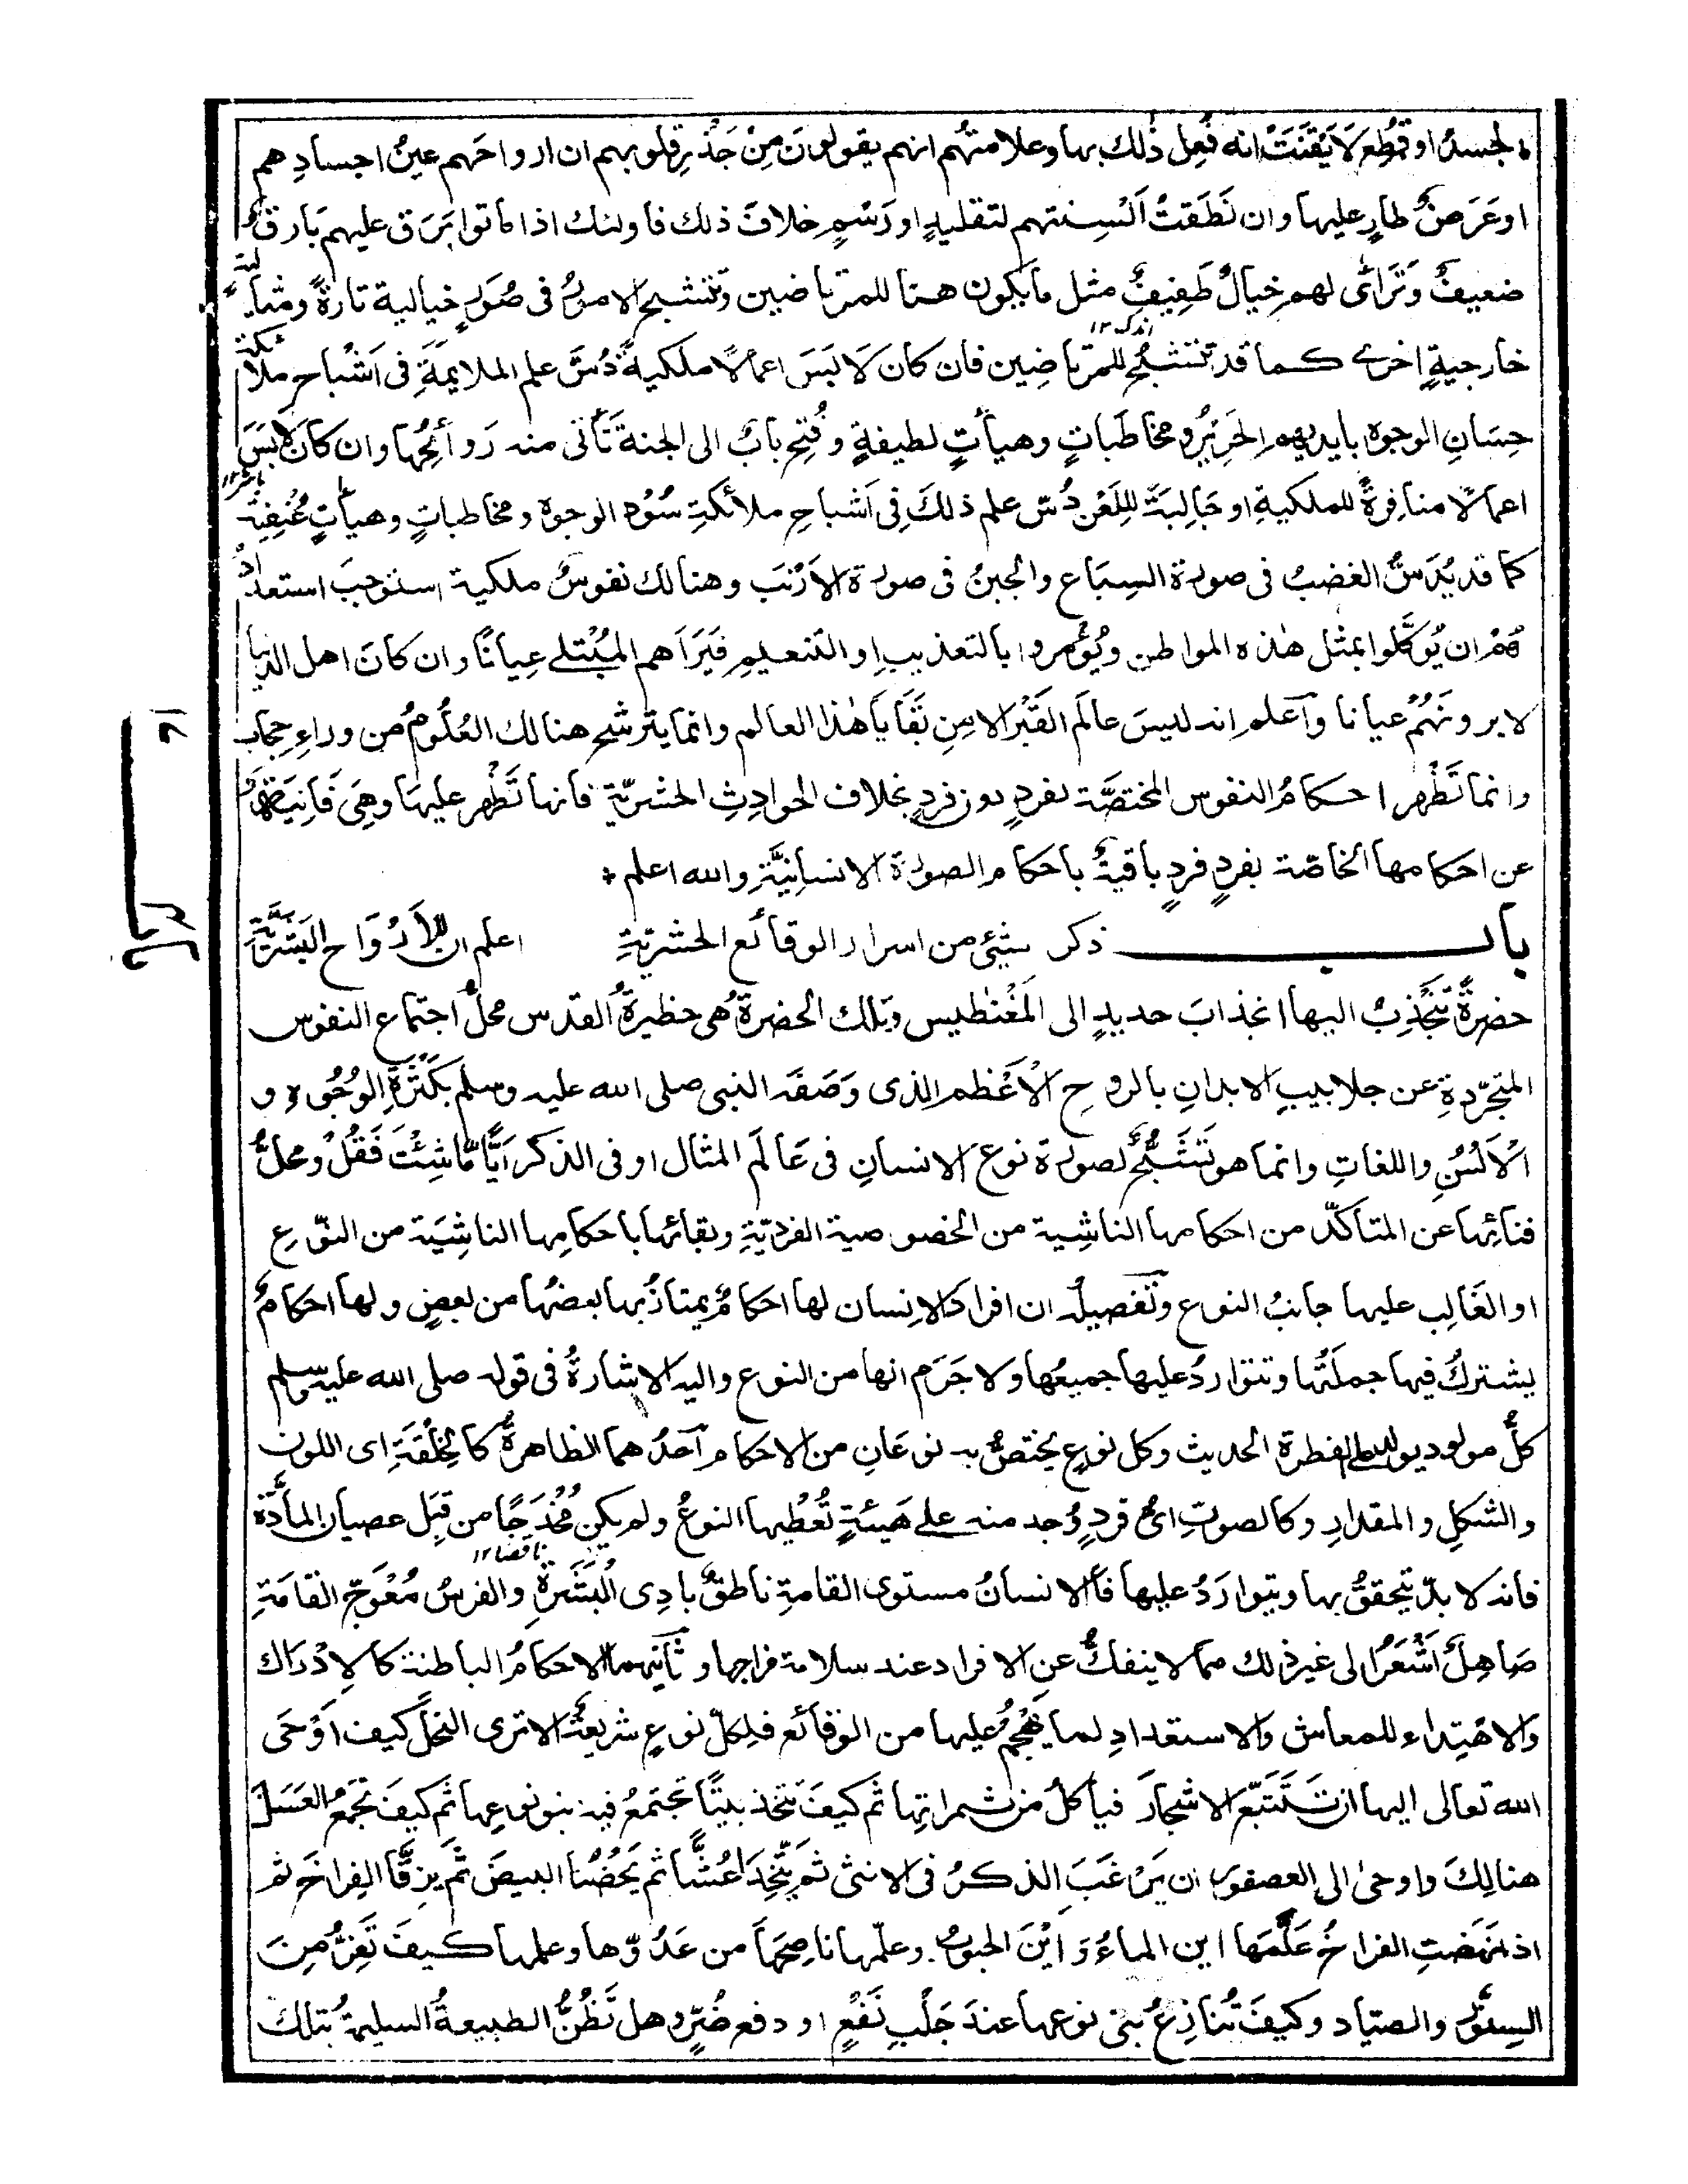 الجسد او قُطِع لَاَيْقَنَتْ انه فُعِل ذٰلك بها وعلامتهم انهم يقولون مِنْ جَذْرِ قلوبهم ان ارواحهم عينُ اجسادِهم
او عَرَضٌ طارٍ عليها وان نَطَقَتْ اَلْسِنتهم لتقليدٍ او رَسْمٍ خلافَ ذلك فاولئك اذا ماتوا بَرَق عليهم بَارقٌ
ضعيفٌ وَتَرَاٰى لهم خيالٌ طَفِيفٌ مثل ما يكون هنا للمرتاضين وتتشبح الامورُ فى صُوَرٍ خيالية تارةً ومثالية
اندک ١٢
خارجيةٍ اخرے كما قد تتشبحُ للمرتاضِين فان كان لَابَسَ اعمالًا ملكيةً دُسَّ علم الملايمَةِ فى اَشْباحِ ملائكة
حِسَانِ الوجوه بايديهم الحَرِيْرُ ومخاطَباتٍ وهيأتٍ لطيفةٍ وفُتِحَ بابٌ الى الجنة تَأتى منه رَوائحُها وان كان لَابَسَ
اعمالًا منافِرةً للملكيةِ او جَالِبَةً لِلَّعْنِ دُسّ علم ذلكَ فِى اَشباحِ ملائكةٍ سُوْدِ الوجوه ومخاطباتٍ وهيأتٍ عُنِيْفَة
كما قد يُدَسُّ الغضبُ فى صورة السِبَاع والجبنُ فى صورة الاَرْنَب وهنالك نفوسٌ ملكية استوجبَ استعداد
هُمْ ان يُوَكَّلوا بمثل هٰذه المواطن ويُؤْمروا بالتعذيب او التنعيم فيَرَاهم المُبْتلے عِيانًا وان كانَ اهل الدنيا
لا يرونَهُمْ عيانا وآعلم انه ليسَ عالَم القَبْر الا مِن بَقَايَا هٰذا العالم وانما يترشح هنالك العُلُومُ من وراءِ حجاب
وانما تَظْهر احكامُ النفوس المختصَّة بفردٍ دون فردٍ بخلاف الحوادِثِ الحشرِيّة فانها تَظْهر عليها وهِىَ فَانِيَة
عن احكامها الخاصّة بفردٍ فردٍ باقيةٌ باحكامِ الصورَة الانسانِيَّةِ والله اعلم +
باب ذكر شئى من اسرار الوقائع الحشريَّةِ اعلم ان للاَرْوَاح البَشَرِيَّةِ
حضرةً تَنْجَذِبُ اليها انجذابَ حديدٍ الى المَغْنَطيس وتلك الحضرةُ هى حظيرةُ القدس محلُّ اجتماع النفوس
المتجرّدةِ عن جلابيبِ الابدانِ بالروحِ الْاَعْظم الذى وَصَفَه النبى صلى الله عليه وسلم بكثرةِ الوُجُوهِ و
الْاَلْسُنِ واللغاتِ وانما هو تَشَبُّحٌ لصورة نوع الانسانِ فى عَالَم المثال او فى الذكر اَيًّا مَّا شِئْتَ فَقُلْ ومحلُّ
فنائِها عن المتأكّد من احكامها الناشِية من الخصوصية الفرديّةِ وبقائها باحكامِها الناشِيَة من النّوعِ
او الغَالِب عليها جانبُ النوع وتفصيلُه ان افرادَ الاِنسان لها احكامٌ يمتازُ بها بعضُها من بعضٍ ولها احكامٌ
يشتركُ فيها جملَتُها وتتواردُ عليها جميعُها ولا جَرَم انها من النوع واليه الاشارةُ فى قوله صلى الله عليه وسلم
كلُّ مولود يولد على الفطرة الحديث وكل نوعٍ يختصُّ به نوعَانِ من الاحكام آحدُهما الظاهرةُ كالخِلْقَةِ اى اللون
والشكلِ والمقدارِ وكالصوتِ اىُّ فردٍ وُجد منه علے هَيئةٍ تُعْطيها النوعُ ولم يكن مُخْدَجًا من قِبَل عصيان المادَّة
ناقصا ١٢
فانه لا بدّ يتحققُ بها ويتوارَدُ عليها فالانسانُ مستوى القامةِ ناطقٌ بادِى الْبَشَرةِ والفرسُ مُعْوَجّ القامَةِ
صَاهِلٌ اَشْعَرُ الى غير ذلك مما لا ينفكُّ عن الافراد عند سلامة مزاجها وثَانيهما الاحكامُ الباطنة كالاِدْرَاك
والاهْتِداء للمعاش والاستعدادِ لما يَهْجُمُ عليها من الوقائع فلِكلّ نوعٍ شريعةٌ الا ترى النحلَ كيف اَوْحَى
الله تعالى اليها ان تَتَتَبّع الاشجارَ فيأكلُ من ثمراتها ثم كيفَ تَتّخذ بيتًا تجتمعُ فيه بنو نوعِها ثم كيفَ تجمعُ العَسَلَ
هنالِكَ واوحىٰ الى العصفور ان يَرْغَبَ الذكرُ فى الانثى ثم يتَّخِذَا عُشًّا ثم يَحْضُنا البيضَ ثم يزقَّا الفِراخَ ثم
اذا نهضتِ الفراخُ عَلَّمَها اين الماءُ وَ ايْنَ الحبوبُ وعلّمها ناصِحَها من عَدُوّها وعلمها كيفَ تَفِرُّ مِنَ
السِنَّوْر والصيّاد وكيفَ تُنَازِعُ بنى نوعها عندَ جَلْبِ نَفْعٍ او دفعِ ضُرٍّ وهل تَظُنُّ الطبيعةُ السليمةُ بتلك